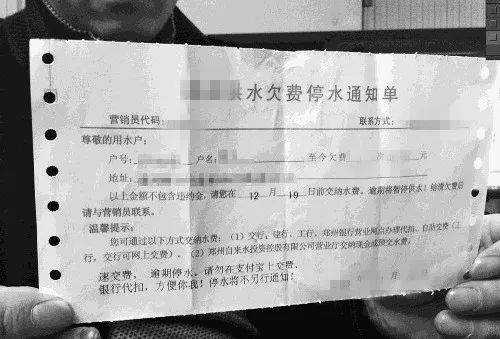 供水欠费停水通知单
营销员代码 联系方式:
尊敬的用水户:
户号: 户名: 至今欠费 次 元
地址:
以上金额不包含违约金,请您在 12 月 19 日前交纳水费,逾期将暂停供水!结清欠费后
请与营销员联系。
温馨提示:
您可通过以下方式交纳水费:(1)交行、建行、工行、郑州银行营业网点办理代扣、自助交费(工
行,交行可网上交费)。(2)郑州自来水投资控股有限公司营业厅交纳现金或预交水费。
速交费,逾期停水,请勿在支付宝上交费,
银行代扣,方便你我!停水将不另行通知! 年 月 日